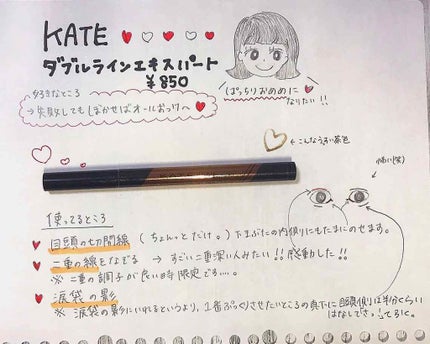 KATE
ダブルラインエキスパート
¥850
好きなところ
→失敗してもぼかせばオールおっけ〜
ぱっちりおめめに
なりたい!!
←こんなうすい茶色
怖い(笑)
使ってるところ
目頭の切開線(ちょんっとだけ。)下まぶたの内側りにもたまにのせます。
二重の線をなぞる → すごい二重深い人みたい!!感動した!!
※二重の調子が良い時限定です....
涙袋の影
※涙袋の影にいれるというより、1番ぷっくりさせたいところの真下に目頭側りは半分くらい
はなしてさっってるかく。